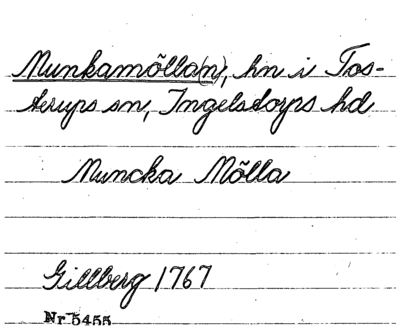 Munkamölla(n), hn i Tos-
terups sn, Ingelstorps hd
Muncka Mölla
Gillberg 1767
Nr 5455